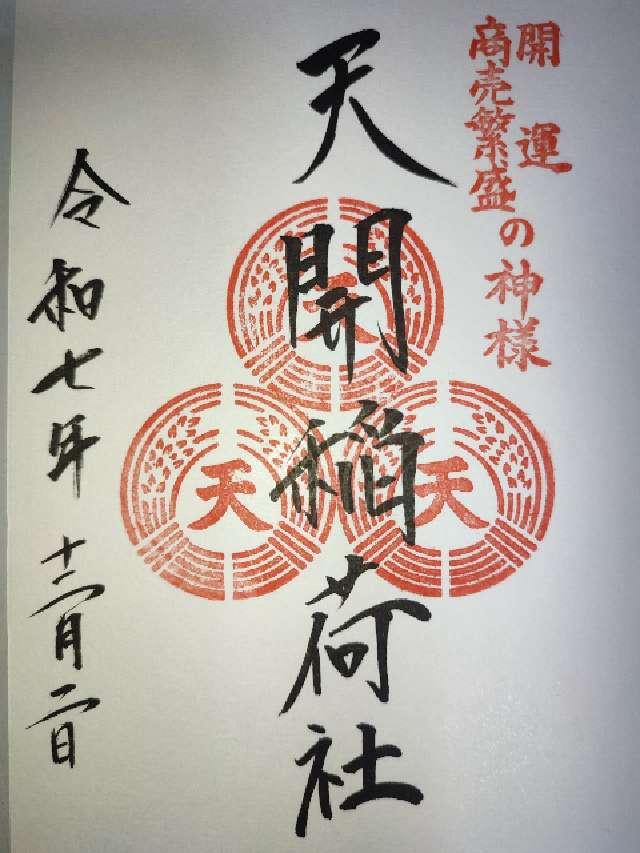 開運
商売繁盛の神様
天開稲荷社
天
天
天
令和七年十二月二日